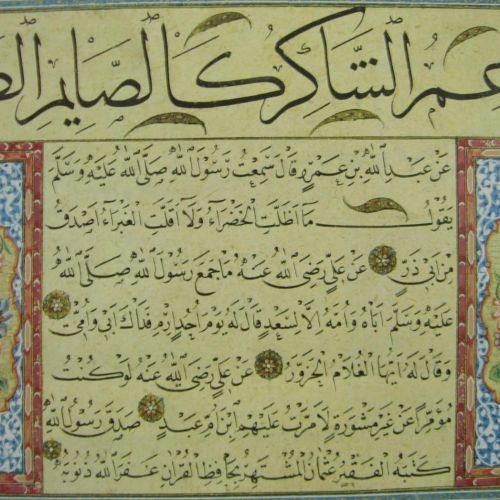 عم الشاكر كالصايم
عن عبد الله بن عمرو قال سمعت رسول الله صلى الله عليه وسلم
يقول ما اظلت الخضراء ولا اقلت الغبراء اصدق
من ابي ذر عن علي رضي الله عنه ما جمع رسول الله صلى الله
عليه وسلم اباه وامه الا لسعد قال له يوم احد ارم فداك ابي وامي
وقال له ايها الغلام الحزور عن علي رضي الله عنه لو كنت
مؤمرا عن غير مشورة لامرت عليهم ابن ام عبد صدق رسول الله
كتبه الفقير عثمان المشتهر بحافظ القران غفر الله ذنوبه